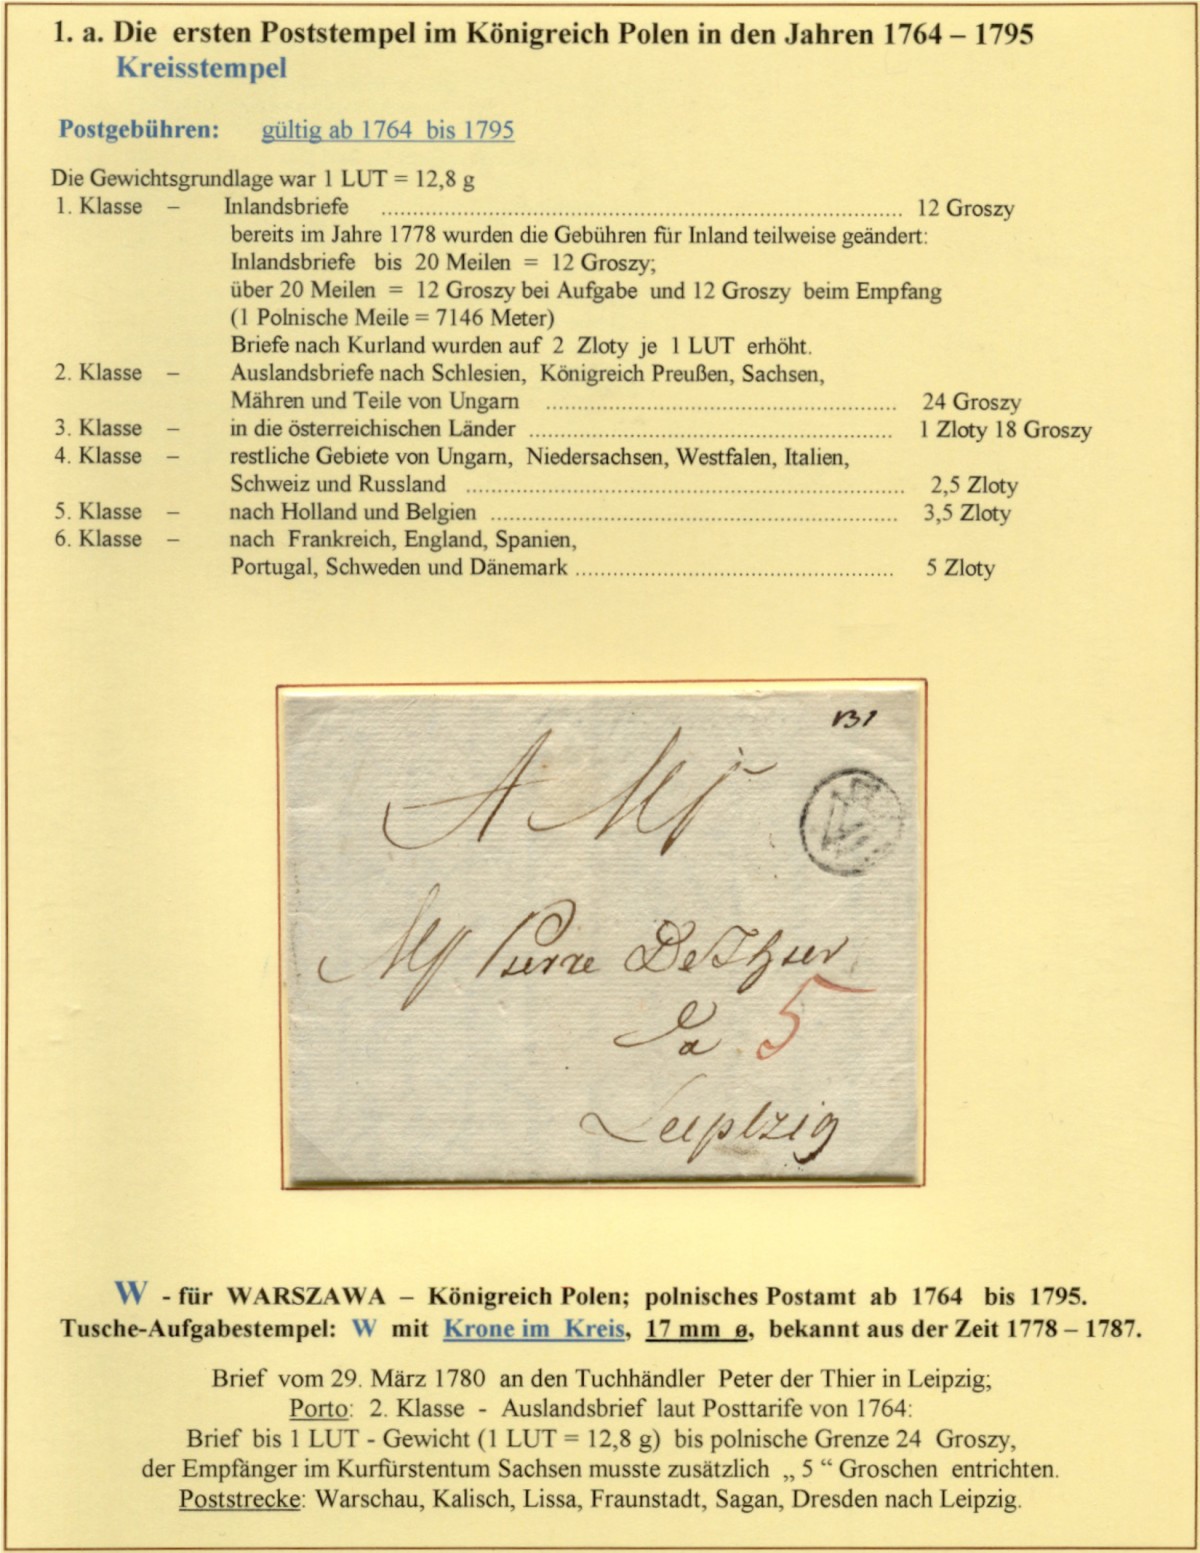 1. a. Die ersten Poststempel im Königreich Polen in den Jahren 1764 – 1795
Kreisstempel
Postgebühren: gültig ab 1764 bis 1795
Die Gewichtsgrundlage war 1 LUT = 12,8 g
1. Klasse – Inlandsbriefe ........................................ 12 Groszy
bereits im Jahre 1778 wurden die Gebühren für Inland teilweise geändert:
Inlandsbriefe bis 20 Meilen = 12 Groszy;
über 20 Meilen = 12 Groszy bei Aufgabe und 12 Groszy beim Empfang
(1 Polnische Meile = 7146 Meter)
Briefe nach Kurland wurden auf 2 Zloty je 1 LUT erhöht.
2. Klasse – Auslandsbriefe nach Schlesien, Königreich Preußen, Sachsen,
Mähren und Teile von Ungarn ........................................ 24 Groszy
3. Klasse – in die österreichischen Länder ........................................ 1 Zloty 18 Groszy
4. Klasse – restliche Gebiete von Ungarn, Niedersachsen, Westfalen, Italien,
Schweiz und Russland ........................................ 2,5 Zloty
5. Klasse – nach Holland und Belgien ........................................ 3,5 Zloty
6. Klasse – nach Frankreich, England, Spanien,
Portugal, Schweden und Dänemark ........................................ 5 Zloty
A
W
Pierre
5
Leiplzig
W - für WARSZAWA – Königreich Polen; polnisches Postamt ab 1764 bis 1795.
Tusche-Aufgabestempel: W mit Krone im Kreis, 17 mm ø, bekannt aus der Zeit 1778 – 1787.
Brief vom 29. März 1780 an den Tuchhändler Peter der Thier in Leipzig;
Porto: 2. Klasse - Auslandsbrief laut Posttarife von 1764:
Brief bis 1 LUT - Gewicht (1 LUT = 12,8 g) bis polnische Grenze 24 Groszy,
der Empfänger im Kurfürstentum Sachsen musste zusätzlich „ 5 “ Groschen entrichten.
Poststrecke: Warschau, Kalisch, Lissa, Fraunstadt, Sagan, Dresden nach Leipzig.